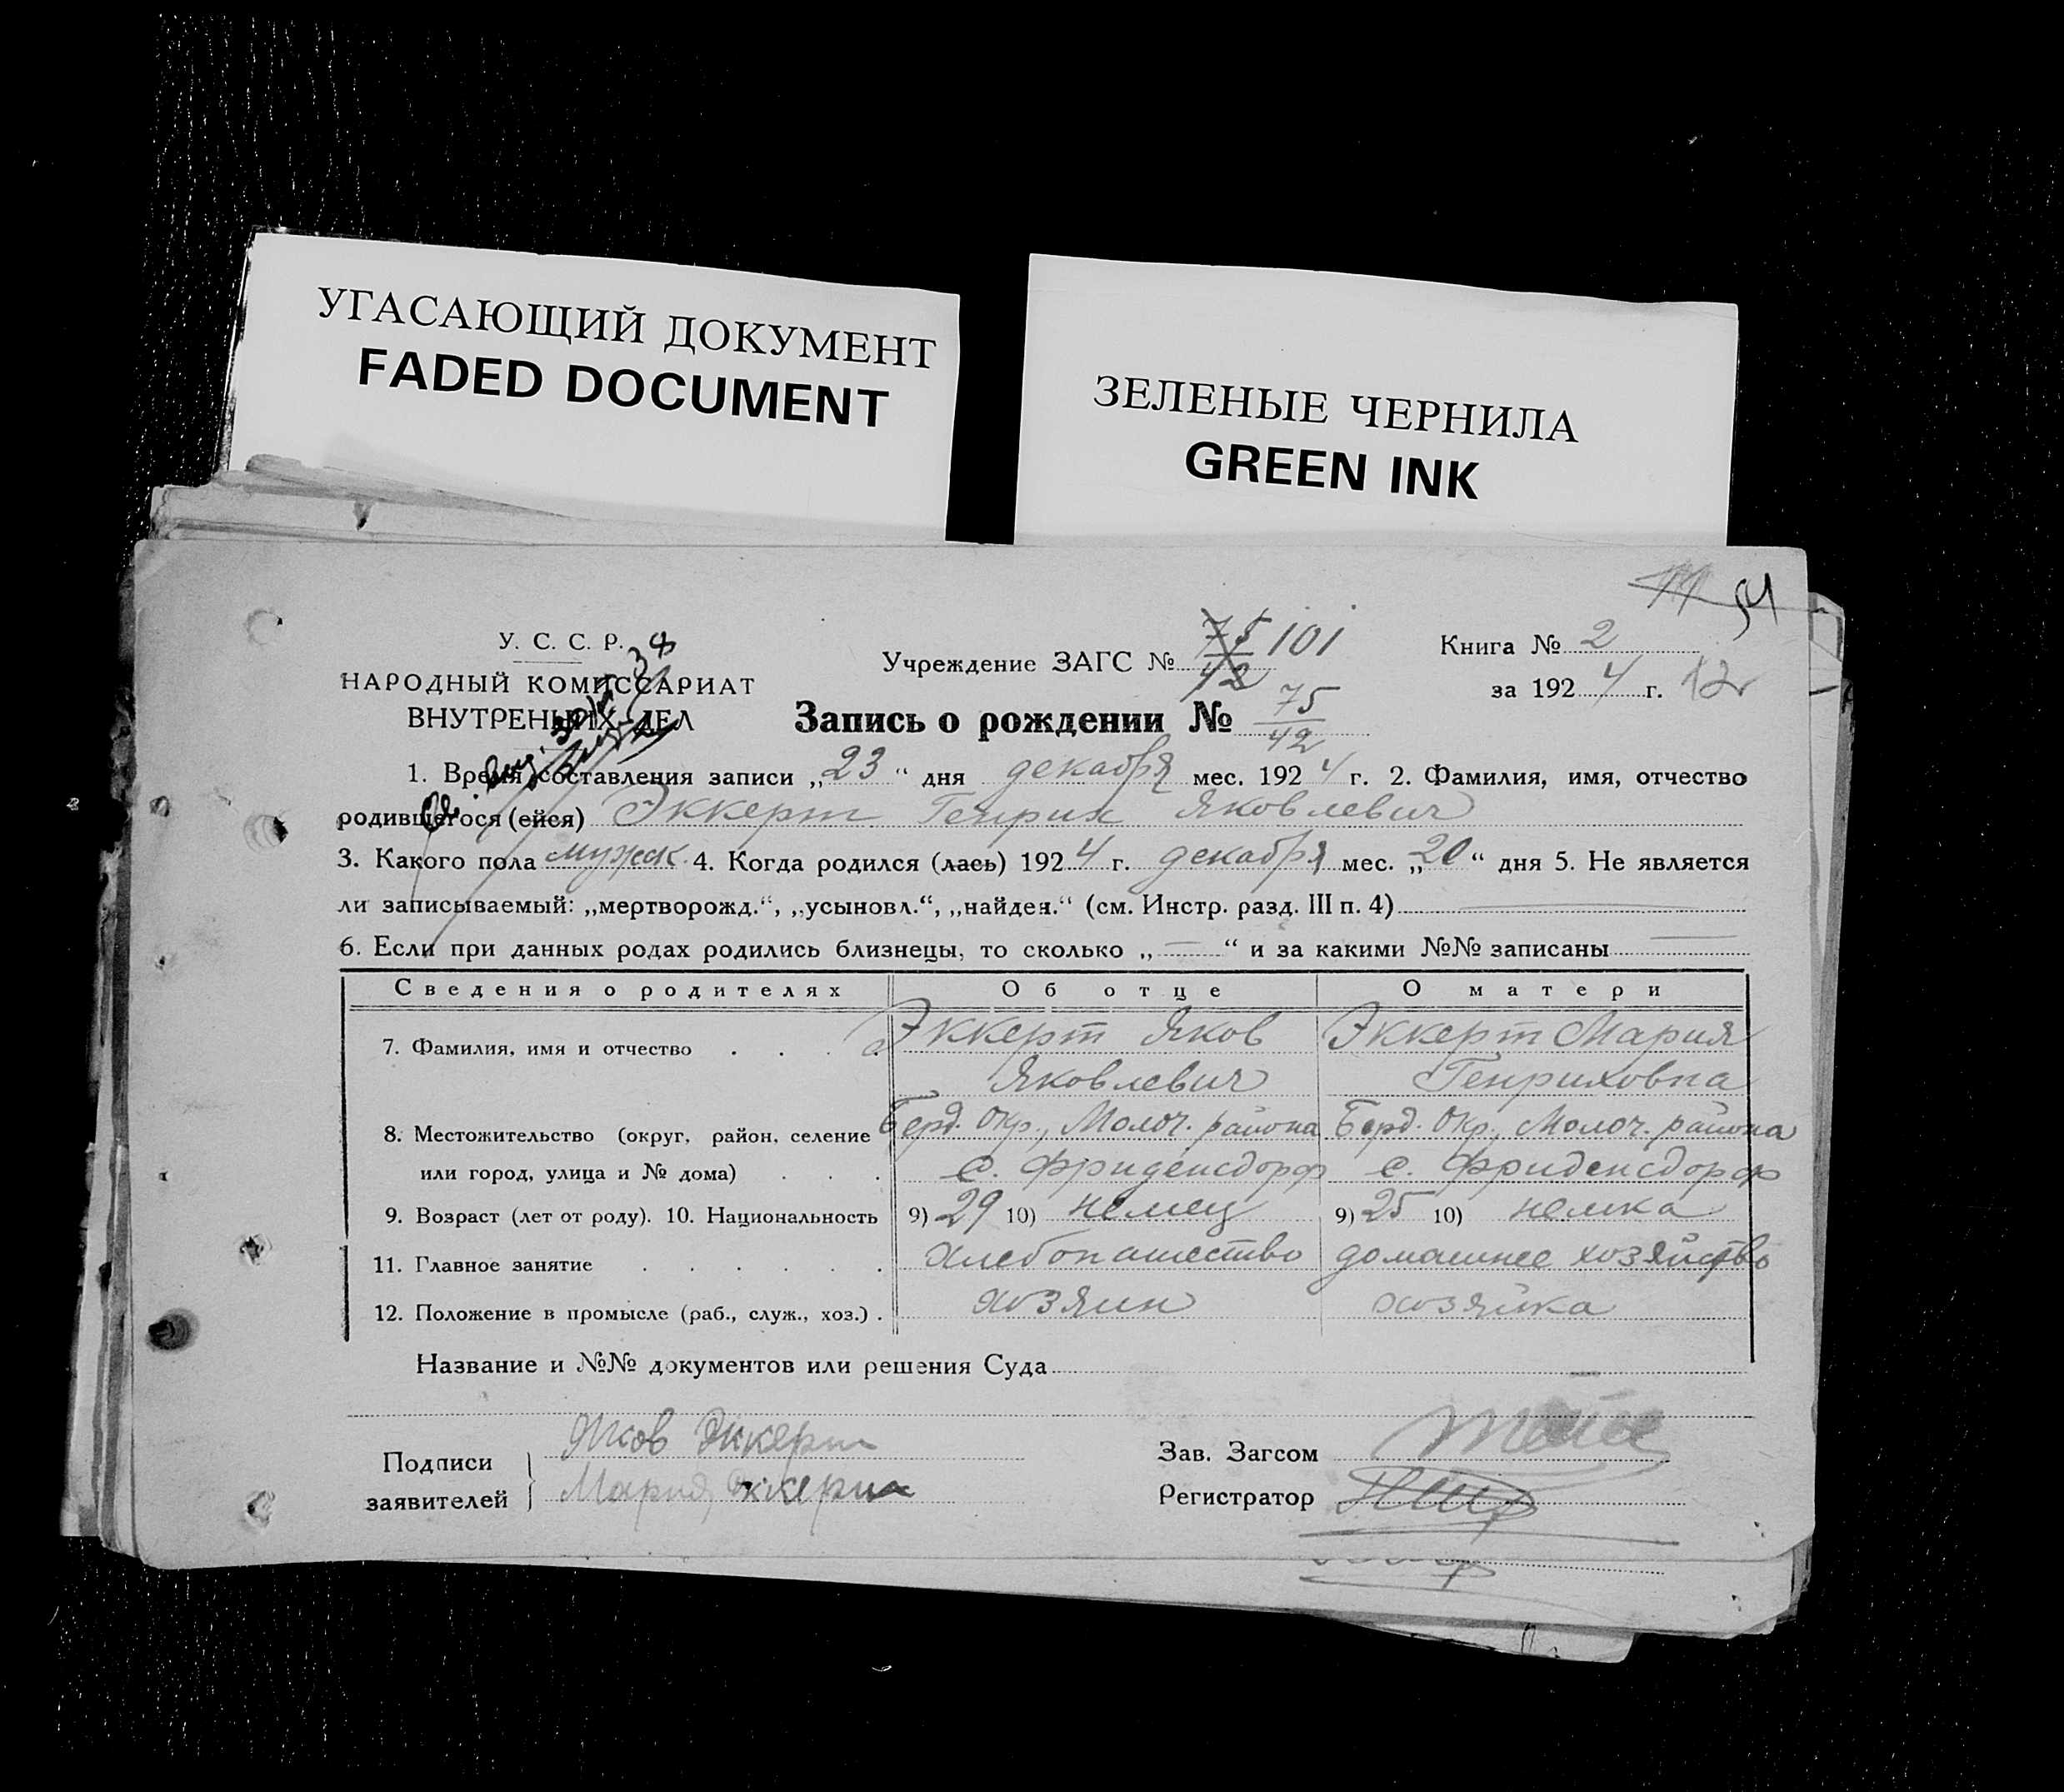 УГАСАЮЩИЙ ДОКУМЕНТ
FADED DOCUMENT
ЗЕЛЕНЫЕ ЧЕРНИЛА
GREEN INK
54
У. С. С. Р.
НАРОДНЫЙ КОМИССАРИАТ
ВНУТРЕННИХ ДЕЛ
Учреждение ЗАГС № 75/42 101
Книга № 2
за 1924 г. 12
Запись о рождении № 75/42
1. Время составления записи „23“ дня декабря мес. 1924 г. 2. Фамилия, имя, отчество
родившегося (ейся) Эккерт Генрих Яковлевич
3. Какого пола мужск. 4. Когда родился (лась) 1924 г. декабря мес. „20“ дня 5. Не является
ли записываемый: „мертворожд.“, „усыновл.“, „найден.“ (см. Инстр. разд. III п. 4)
6. Если при данных родах родились близнецы, то сколько „—“ и за какими №№ записаны —
Сведения о родителях Об отце О матери
7. Фамилия, имя и отчество . . . . Эккерт Яков Эккерт Мария
Яковлевич Генриховна
8. Местожительство (округ, район, селение Берд. Окр., Молоч. района Берд. Окр., Молоч. района
или город, улица и № дома) . . . с. Фриденсдорф с. Фриденсдорф
9. Возраст (лет от роду). 10. Национальность 9) 29 10) немец 9) 25 10) немка
11. Главное занятие . . . . . . хлебопашество домашнее хозяйство
12. Положение в промысле (раб., служ., хоз.) . хозяин хозяйка
Название и №№ документов или решения Суда
Подписи
заявителей
Яков Эккерт
Мария Эккерт
Зав. Загсом
Регистратор